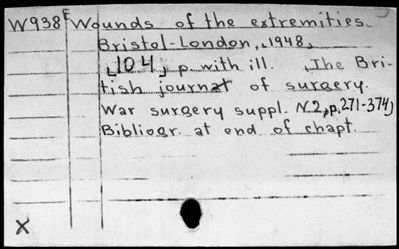 W938E Wounds of the extremities.
Bristol-London, [1948]
[104] p. with ill. (The Bri-
tish journal of surgery.
War surgery suppl. N2, p. 271-374)
Bibliogr. at end of chapt.
X